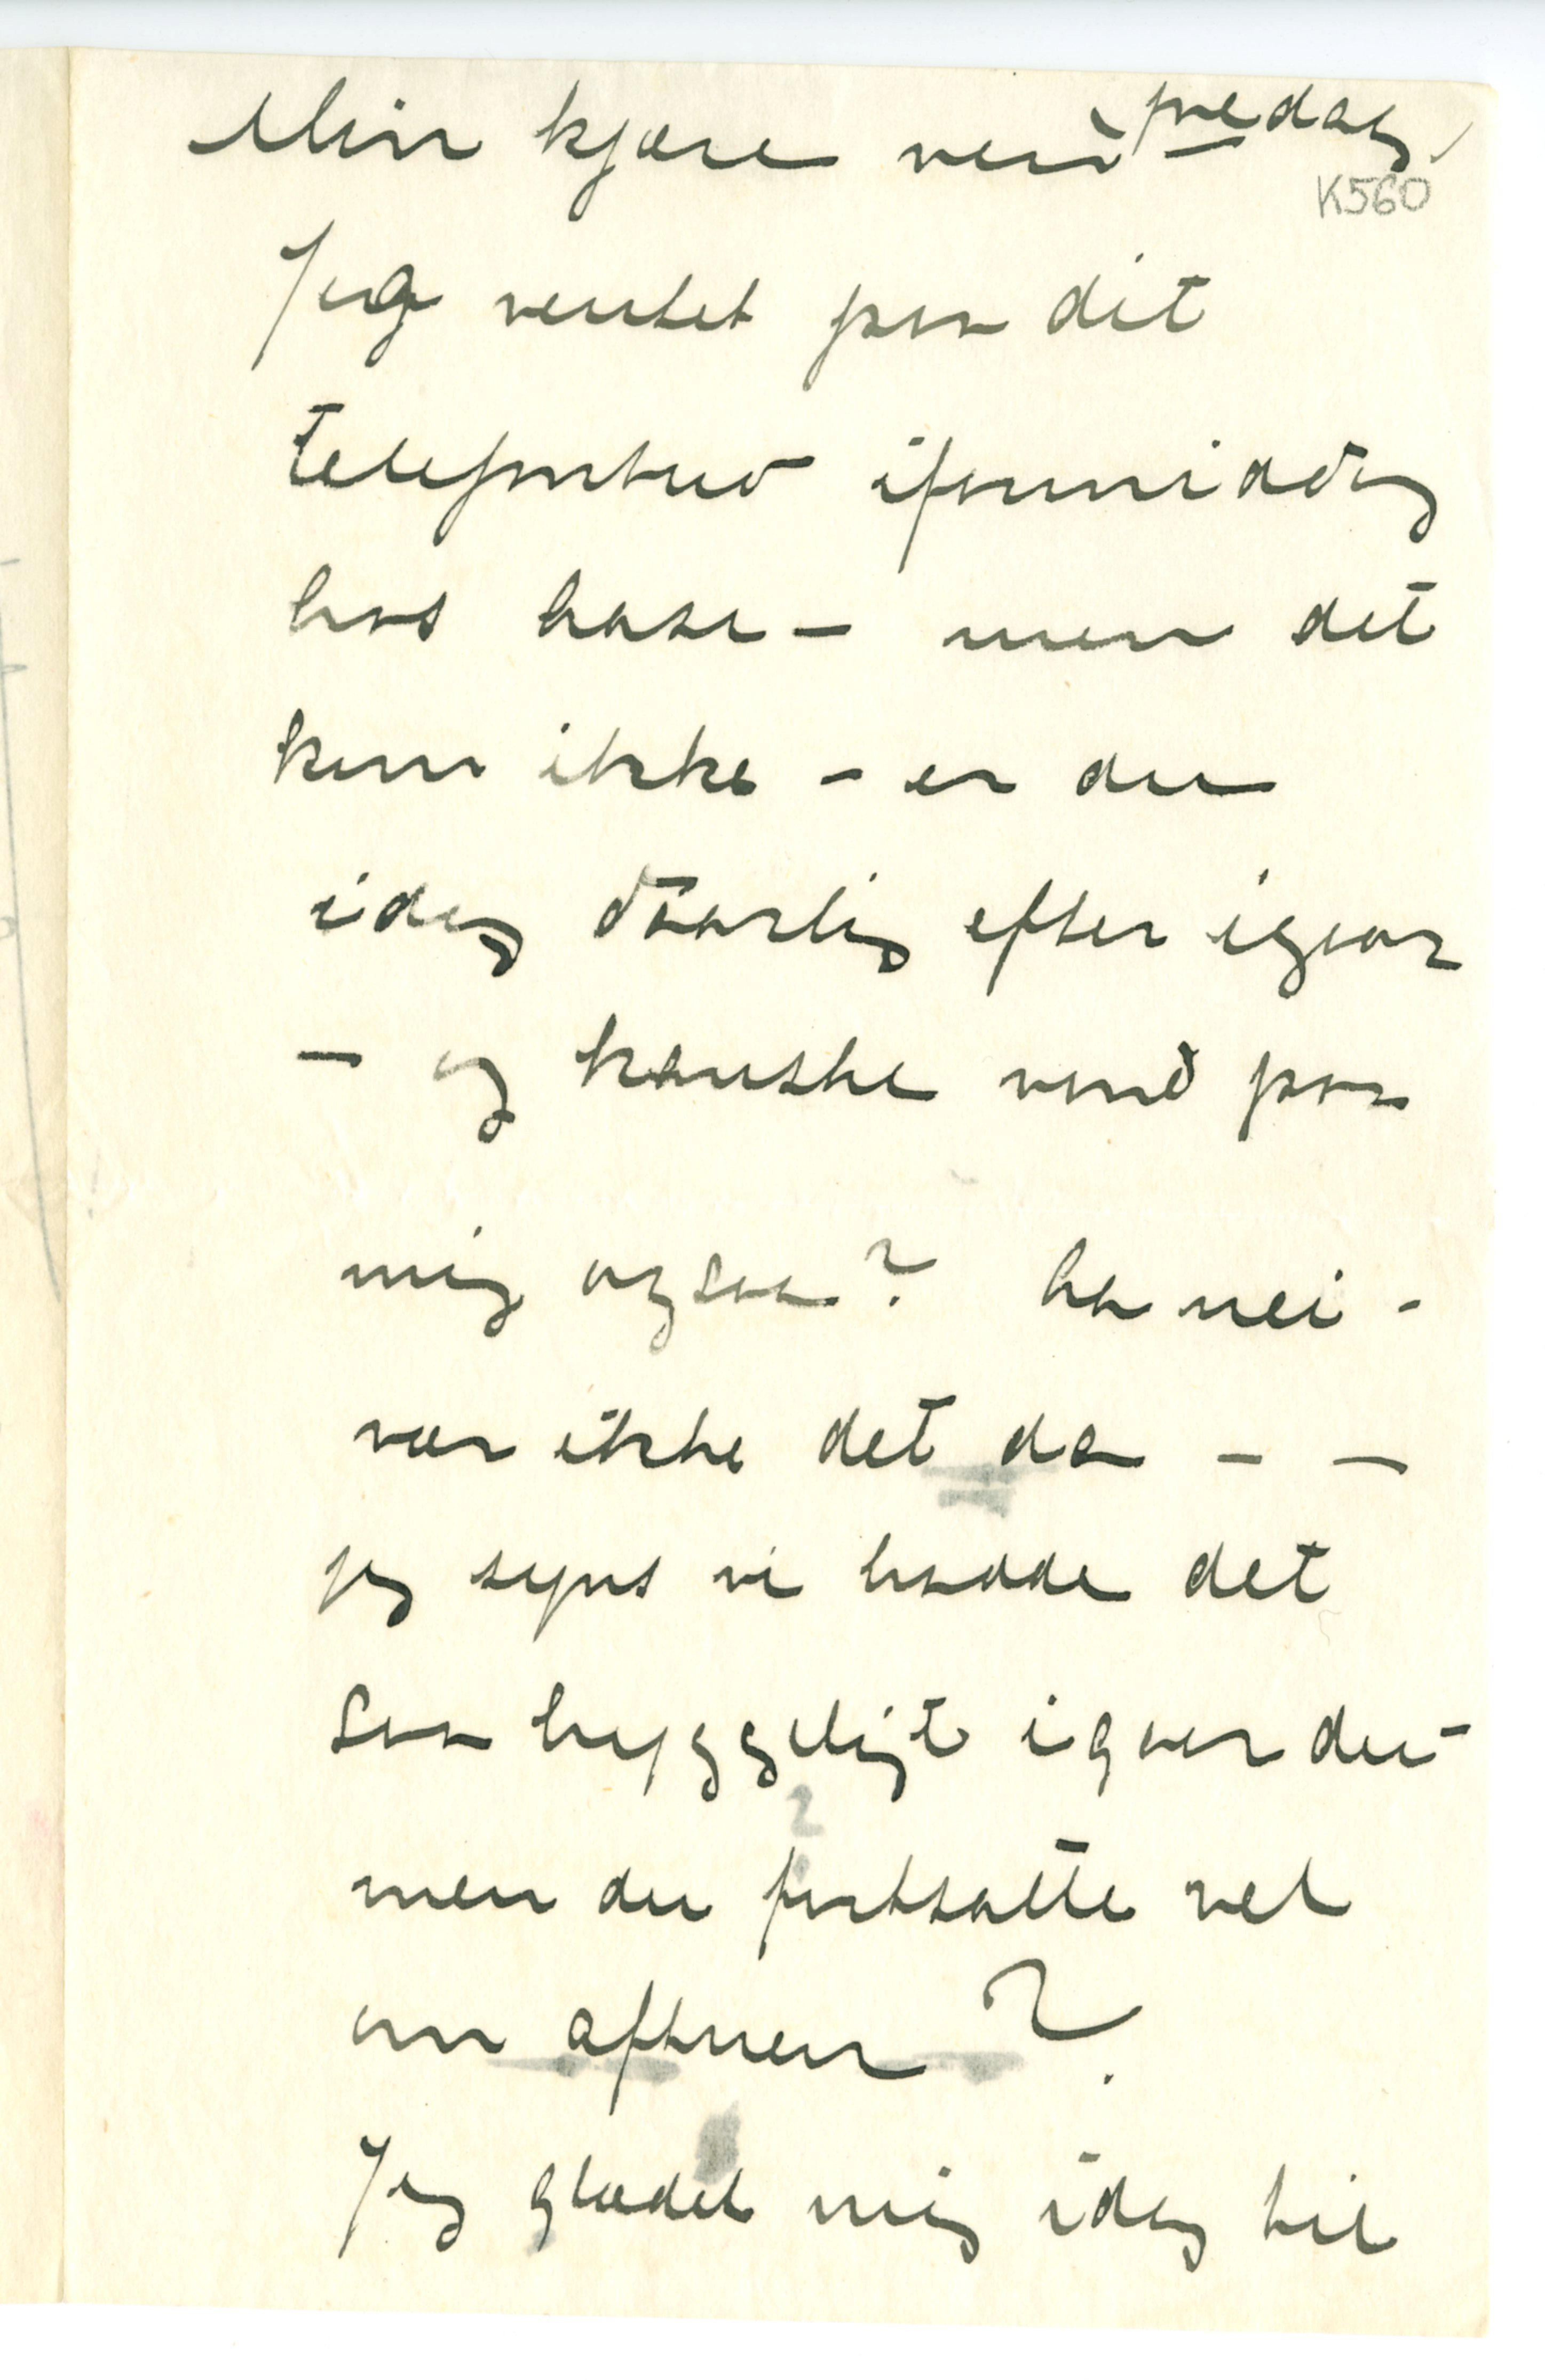 Min kjære ven – fredag
K560
Jeg ventet paa dit
telefonbud iformiddag
hos – men det
kom ikke – er du
idag daarlig efter igaar
– og kanske vond paa
mig ogsaa? ha nei –
vær ikke det da – –
jeg syns vi hadde det
saa hyggeligt igaar du –
men du fortsatte vel
om aftnen?
Jeg glædet mig idag til